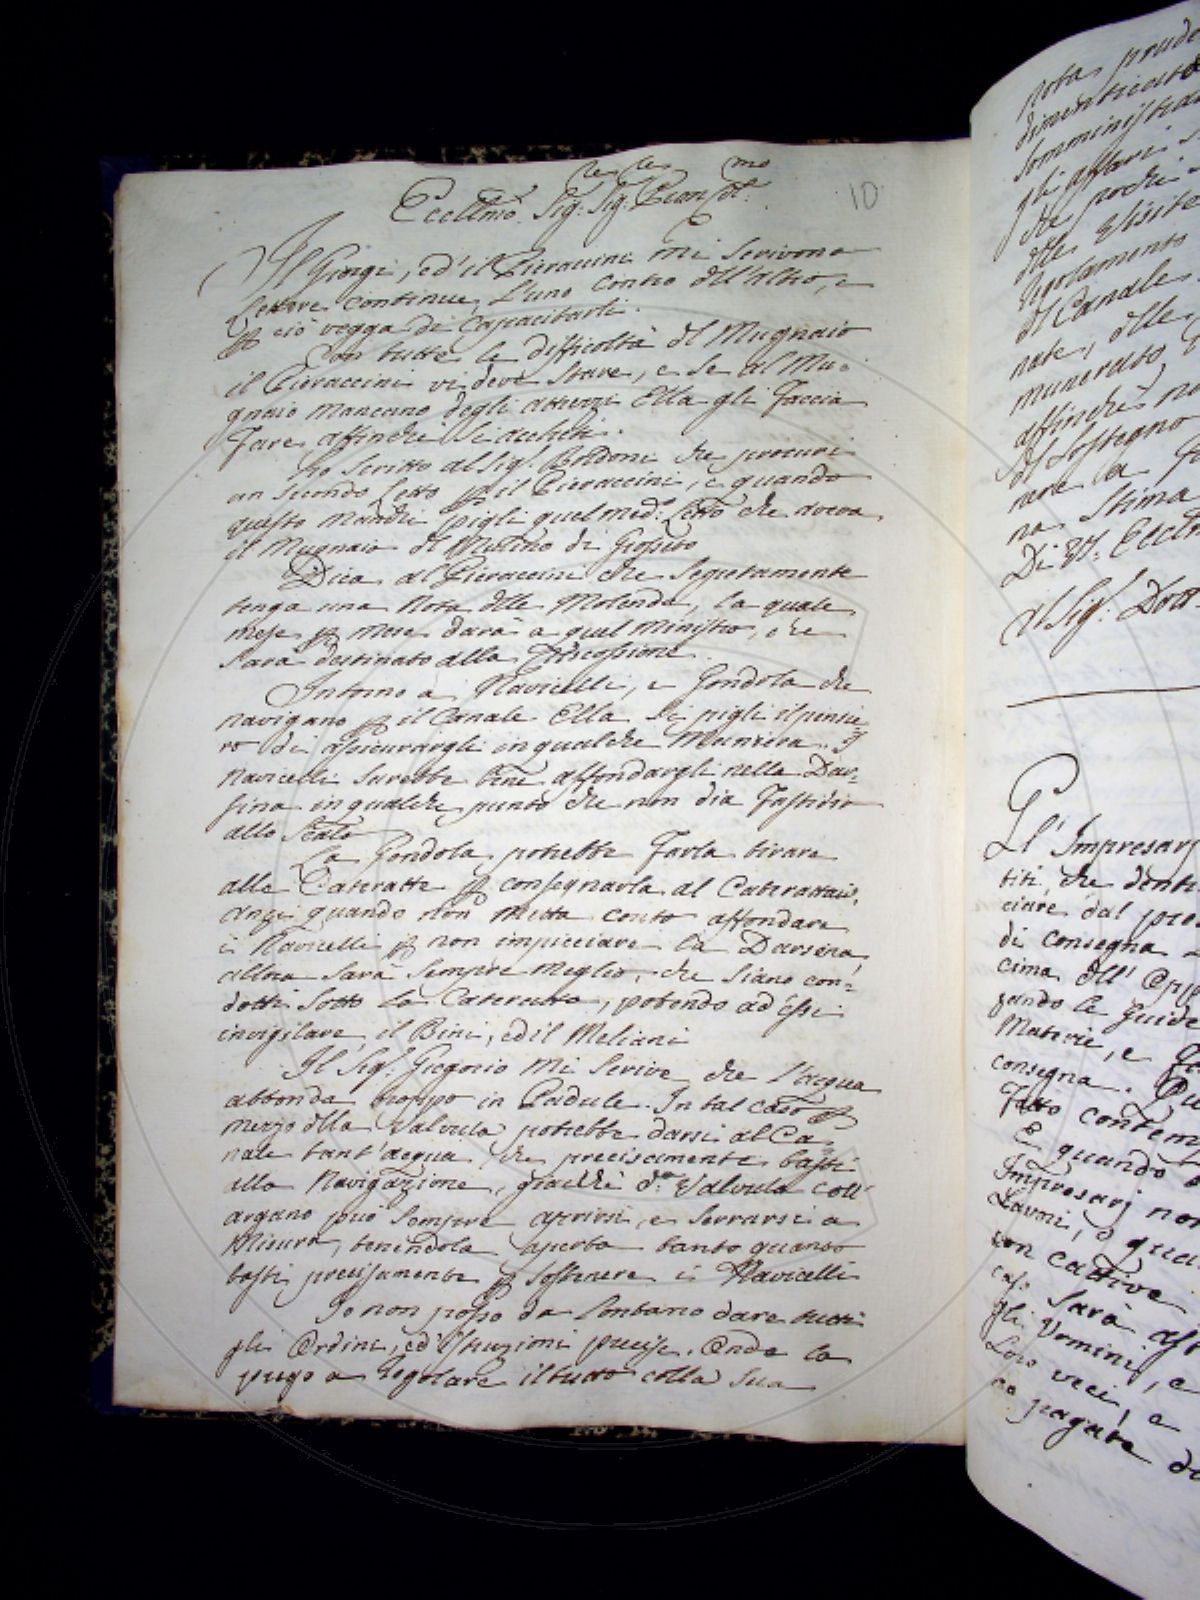 10
Eccellmo. Sig: Sig:
Il Giorgi, ed' il Pieraccini mi scrivono
Lettere continue, L'uno contro dell'altro, e
ꝑ ciò vegga di Capacitarli.
Con tutte le difficoltà del Mugnaio
il Pieraccini vi deve stare, e se al Mu-
gnaio mancano degli attrezzi Ella gli faccia
fare, affinchè si acchieti.
Ho scritto al Sig.r Boldoni che procuri
un secondo Letto ꝑ il Pieraccini, e quando
questo manchi pigli quel med.o Letto che aveva
il Mugnaio del Mulino di
Dica al Pieraccini che segretamente
tenga una Nota delle Molende, la quale
mese ꝑ mese darà a quel Ministro, che
sarà destinato alla Riscossione.
Intorno a' Navicelli, e Gondola che
navigano ꝑ il Canale Ella si pigli il pensie-
ro di assicurargli in qualche Maniera. I
Navicelli sarebbe bene affondargli nella Dar-
sina in qualche punto che non dia fastidio
allo Scalo
La Gondola potrebbe farla tirare
alle Cateratte ꝑ consegnarla al Caterattaio,
anzi quando non metta conto affondare
i Navicelli ꝑ non impicciare la Darsena,
allora sarà sempre meglio, che siano con-
dotti sotto la Cateratta, potendo ad essi
invigilare, il Bini, ed il Meliani
Il Sig.r Gregorio mi scrive che l'acqua
abbonda troppo in Padule. In tal caso ꝑ
mezzo della Valvula potrebbe darsi al Ca-
nale tant'acqua che precisamente basti
alla Navigazione, giacchè d.a Valvula coll'
argano può sempre aprirsi, e serrarsi a
Misura, tenendola aperta tanto quanto
basti precisamente ꝑ sostenere i Navicelli
Io non posso da lontano dare tutti
gli Ordini, ed' Istruzioni precise. Onde la
prego a regolare il tutto colla sua
dimenticato
gli affari
che pochi
delle Visite
del Canale
nate, delle
affinchè
di Sostegno
na Stima
Al Sig.r Dott
Gl' Impresarj
di consegna
cima dell'
Materie, e
consegna.
E quando
Impresarj non
Lavori, o
con cattive
caso sarà
gli Uomini, e
Loro veci, e
pagare